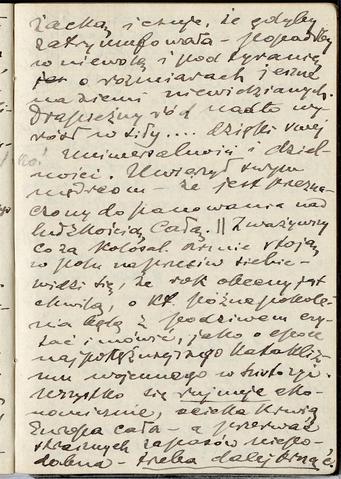 żacką, i czuje, że gdyby
zatryumfowała – popadłby
w niewolę i pod tyranię
o rozmiarach jeszcze
na ziemi niewidzianych.
Drapieżny ród nadto wy-
rósł w siły.... dzięki swej
umiejętności i dziel-
ności. Uwierzył swym
mędrcom – że jest przezna-
czony do panowania nad
ludzkością całą. || Zważywszy
co za kolosal. armie stoją
w polu naprzeciw siebie –
widzi się, że rok obecny jest
chwilą, o kt. późne pokole-
nia będą z podziwem czy-
tać i mówić, jako o epoce
najpotężniejszego katakliz-
mu wojennego w historyi.
Wszystko się rujnuje eko-
nomicznie, ocieka krwią
Europa cała – a przerwać
strasznych zapasów niepo-
dobna – trzeba dalej brnąć.